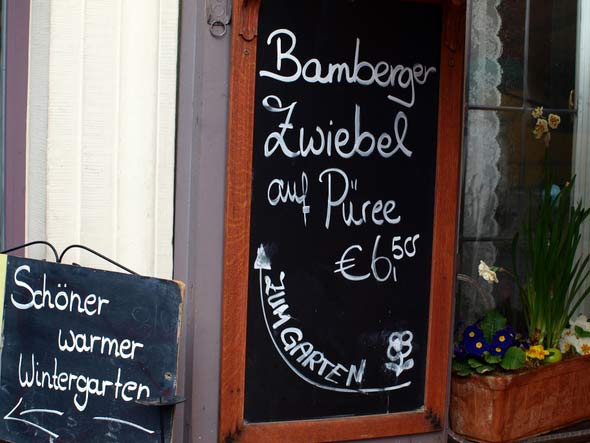 Bamberger
Zwiebel
auf Püree
€6,50
ZUM GARTEN
Schöner
warmer
Wintergarten